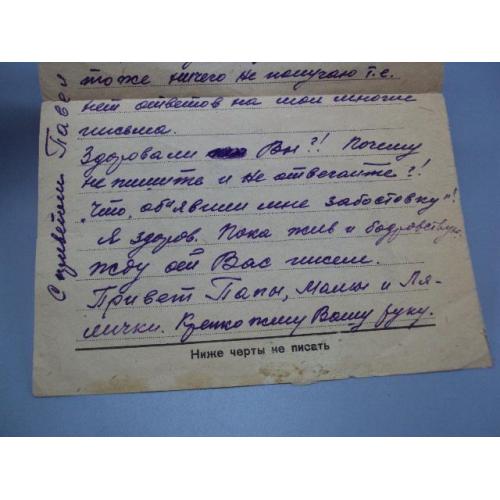 тоже ничего не получаю т.е.
нет ответов на мои многие
письма.
Здоровали Вы?! Почему
не пишите и не отвечаите?!
"Что, об'явили мне забостовку"!
Я здоров. Пока жив и бодрствую.
Жду от Вас писем.
Привет Папы, Мамы и Ля-
лички. Крепко жму Вашу руку.
Ниже черты не писать
С приветом Павел